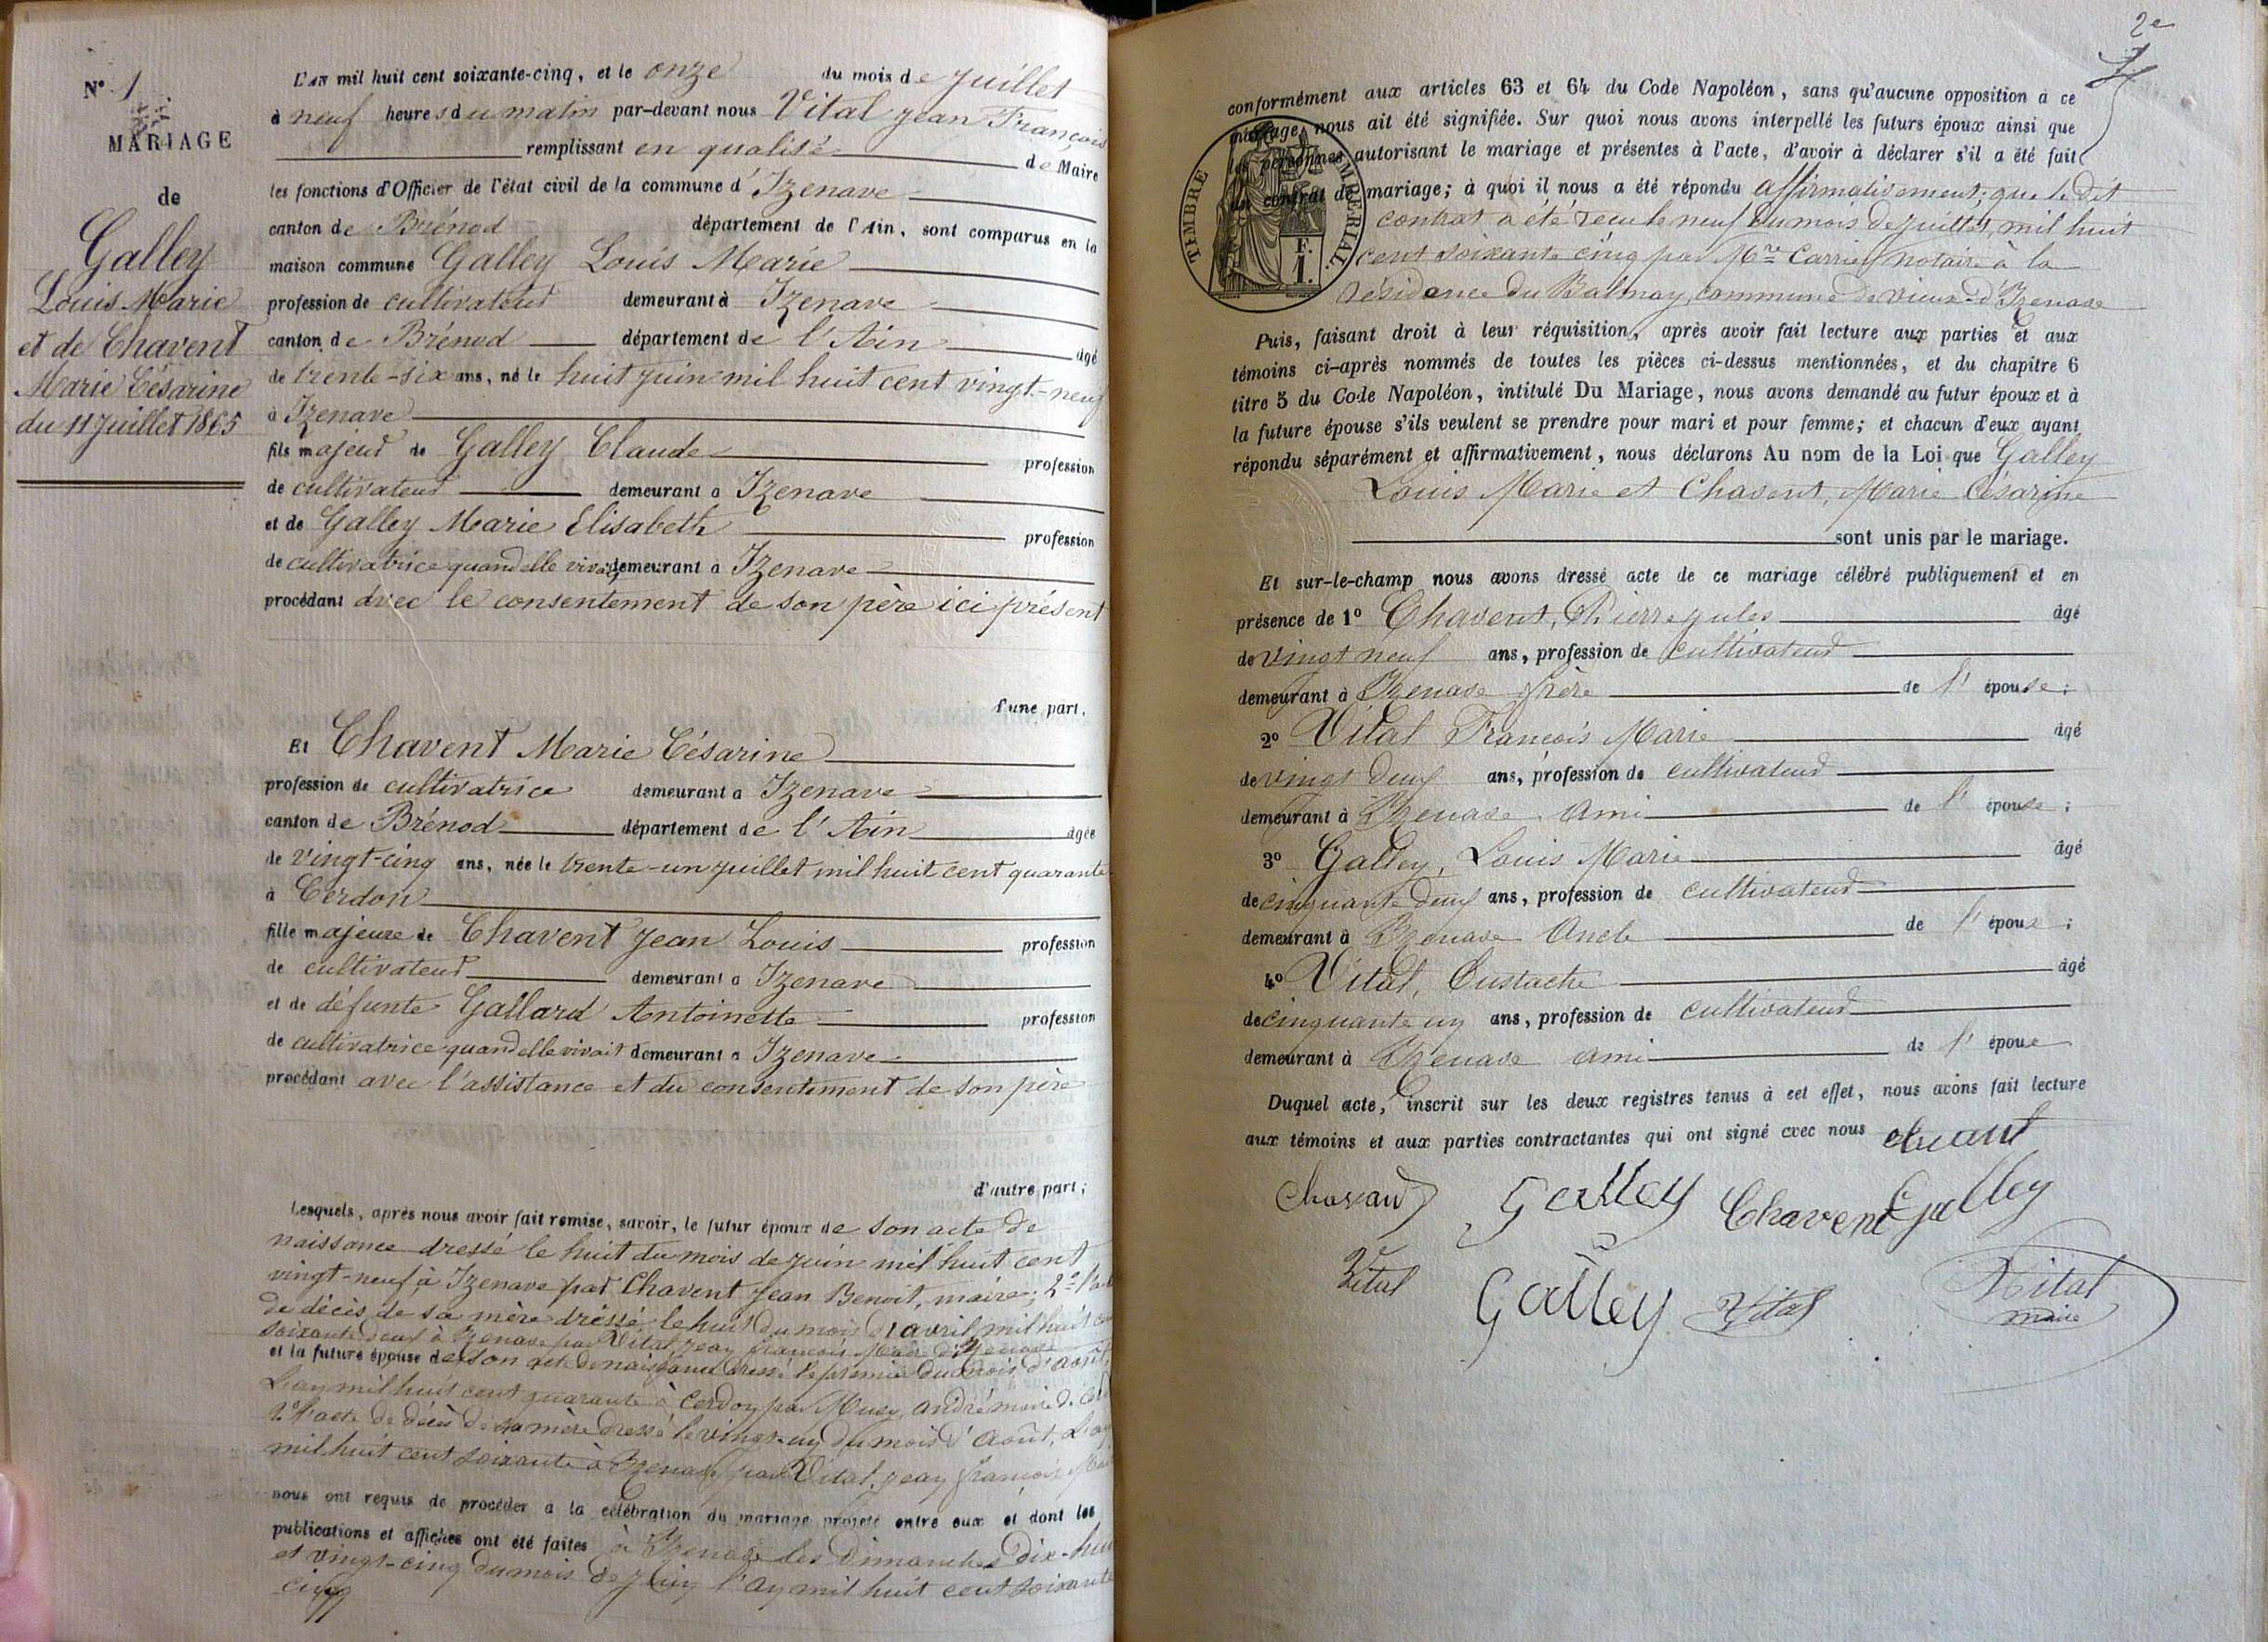 N° 1
MARIAGE
de
Galley
Louis Marie
et de Chavent
Marie Césarine
du 11 Juillet 1865
L'an mil huit cent soixante-cinq, et le onze du mois de Juillet
à neuf heures du matin par-devant nous Vital Jean François
remplissant en qualité de Maire
les fonctions d'Officier de l'état civil de la commune d'Izenave
canton de Brénod département de l'Ain, sont comparus en la
maison commune Galley Louis Marie
profession de cultivateur demeurant à Izenave
canton de Brénod département de l'Ain âgé
de trente-six ans, né le huit juin mil huit cent vingt-neuf
à Izenave
fils majeur de Galley Claude profession
de cultivateur demeurant à Izenave
et de Galley Marie Elisabeth profession
de cultivatrice quand elle vivait demeurant à Izenave
procédant avec le consentement de son père ici présent
d'une part.
Et Chavent Marie Césarine
profession de cultivatrice demeurant à Izenave
canton de Brénod département de l'Ain âgée
de vingt-cinq ans, née le trente-un juillet mil huit cent quarante
à Cerdon
fille majeure de Chavent Jean Louis profession
de cultivateur demeurant à Izenave
et de défunte Gallard Antoinette profession
de cultivatrice quand elle vivait demeurant à Izenave
procédant avec l'assistance et du consentement de son père
d'autre part;
Lesquels, après nous avoir fait remise, savoir, le futur époux de son acte de
naissance dressé le huit du mois de juin mil huit cent
vingt-neuf à Izenave par Chavent Jean Benoit, maire; 2° l'acte
de décès de sa mère dressé le huit du mois d'avril mil huit cent
soixante deux à Izenave par Vital Jean François Maire d'Izenave
et la future épouse de son acte de naissance dressé le premier du mois d'août
L'an mil huit cent quarante à Cerdon par André maire de
2° l'acte de décès de sa mère dressé le vingt-un du mois d'Août, L'an
mil huit cent soixante à Izenave par Vital, Jean François
nous ont requis de procéder à la célébration du mariage projeté entre eux et dont les
publications et affiches ont été faites à Izenave les Dimanches dix-huit
et vingt-cinq du mois de Juin l'an mil huit cent soixante
cinq
2e
conformément aux articles 63 et 64 du Code Napoléon, sans qu'aucune opposition à ce
mariage nous ait été signifiée. Sur quoi nous avons interpellé les futurs époux ainsi que
les personnes autorisant le mariage et présentes à l'acte, d'avoir à déclarer s'il a été fait
un contrat de mariage; à quoi il nous a été répondu affirmativement; que le dit
contrat a été recu le neuf du mois de juillet, mil huit
cent soixante cinq par Mre Carrier notaire à la
résidence du Balmay, commune de vieux-d'Izenave
TIMBRE IMPÉRIAL.
F.
1.
Puis, faisant droit à leur réquisition, après avoir fait lecture aux parties et aux
témoins ci-après nommés de toutes les pièces ci-dessus mentionnées, et du chapitre 6
titre 5 du Code Napoléon, intitulé Du Mariage, nous avons demandé au futur époux et à
la future épouse s'ils veulent se prendre pour mari et pour femme; et chacun d'eux ayant
répondu séparément et affirmativement, nous déclarons Au nom de la Loi que Galley
Louis Marie et Chavent, Marie Césarine
sont unis par le mariage.
Et sur-le-champ nous avons dressé acte de ce mariage célébré publiquement et en
présence de 1° Chavent, Pierre Jules âgé
de vingt neuf ans, profession de cultivateur
demeurant à Izenave frère de l'épouse;
2° Vital François Marie âgé
de vingt deux ans, profession de cultivateur
demeurant à Izenave ami de l'épouse;
3° Galley, Louis Marie âgé
de cinquante deux ans, profession de cultivateur
demeurant à Izenave Oncle de l'époux;
4° Vital, Eustache âgé
de cinquante un ans, profession de cultivateur
demeurant à Izenave ami de l'époux
Duquel acte, inscrit sur les deux registres tenus à cet effet, nous avons fait lecture
aux témoins et aux parties contractantes qui ont signé avec nous
Galley Chavent Galley
Vital Galley Vital Vital
maire